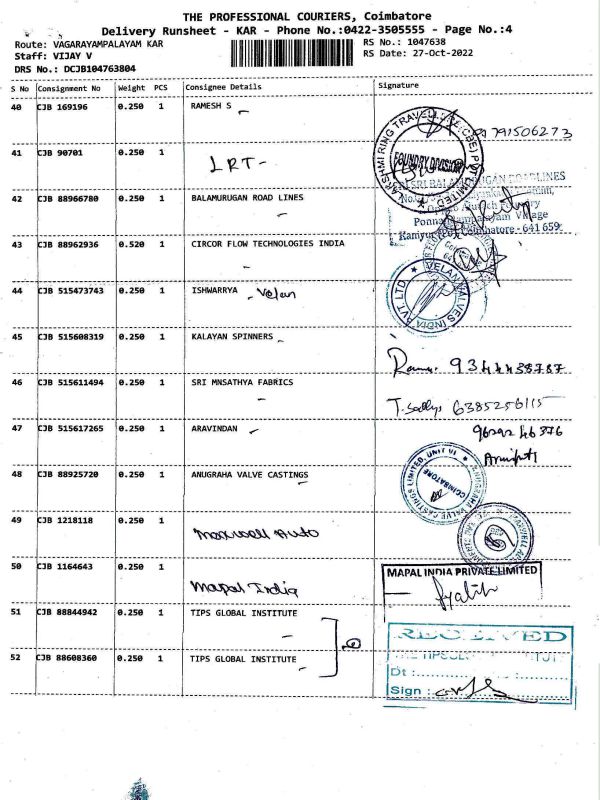 THE PROFESSIONAL COURIERS, Coimbatore
Delivery Runsheet - KAR - Phone No.:0422-3505555 - Page No.:4
Route: VAGARAYAMPALAYAM KAR RS No.: 1047638
Staff: VIJAY V RS Date: 27-Oct-2022
DRS No.: DCJB104763804
S No Consignment No Weight PCS Consignee Details Signature
40 CJB 169196 0.250 1 RAMESH S
9791506273
41 CJB 90701 0.250 1 LRT -
FOUNDRY DIVISION
42 CJB 88966780 0.250 1 BALAMURUGAN ROAD LINES
Coimbatore - 641 659
43 CJB 88962936 0.520 1 CIRCOR FLOW TECHNOLOGIES INDIA
44 CJB 515473743 0.250 1 ISHWARRYA - Velan
VELAN VALVES INDIA PVT LTD
45 CJB 515608319 0.250 1 KALAYAN SPINNERS
46 CJB 515611494 0.250 1 SRI MNSATHYA FABRICS
6385256115
47 CJB 515617265 0.250 1 ARAVINDAN
48 CJB 88925720 0.250 1 ANUGRAHA VALVE CASTINGS
ANUGRAHA VALVE CASTINGS LIMITED, UNIT VI
COIMBATORE
49 CJB 1218118 0.250 1 Maxwell Auto
50 CJB 1164643 0.250 1 Mapal India
MAPAL INDIA PRIVATE LIMITED
51 CJB 88844942 0.250 1 TIPS GLOBAL INSTITUTE
RECEIVED
52 CJB 88608360 0.250 1 TIPS GLOBAL INSTITUTE
Dt :
Sign :